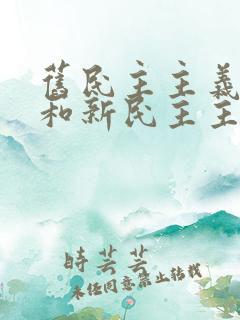 舊民主主義
和新民主主
時芸芸
未经同意禁止转载